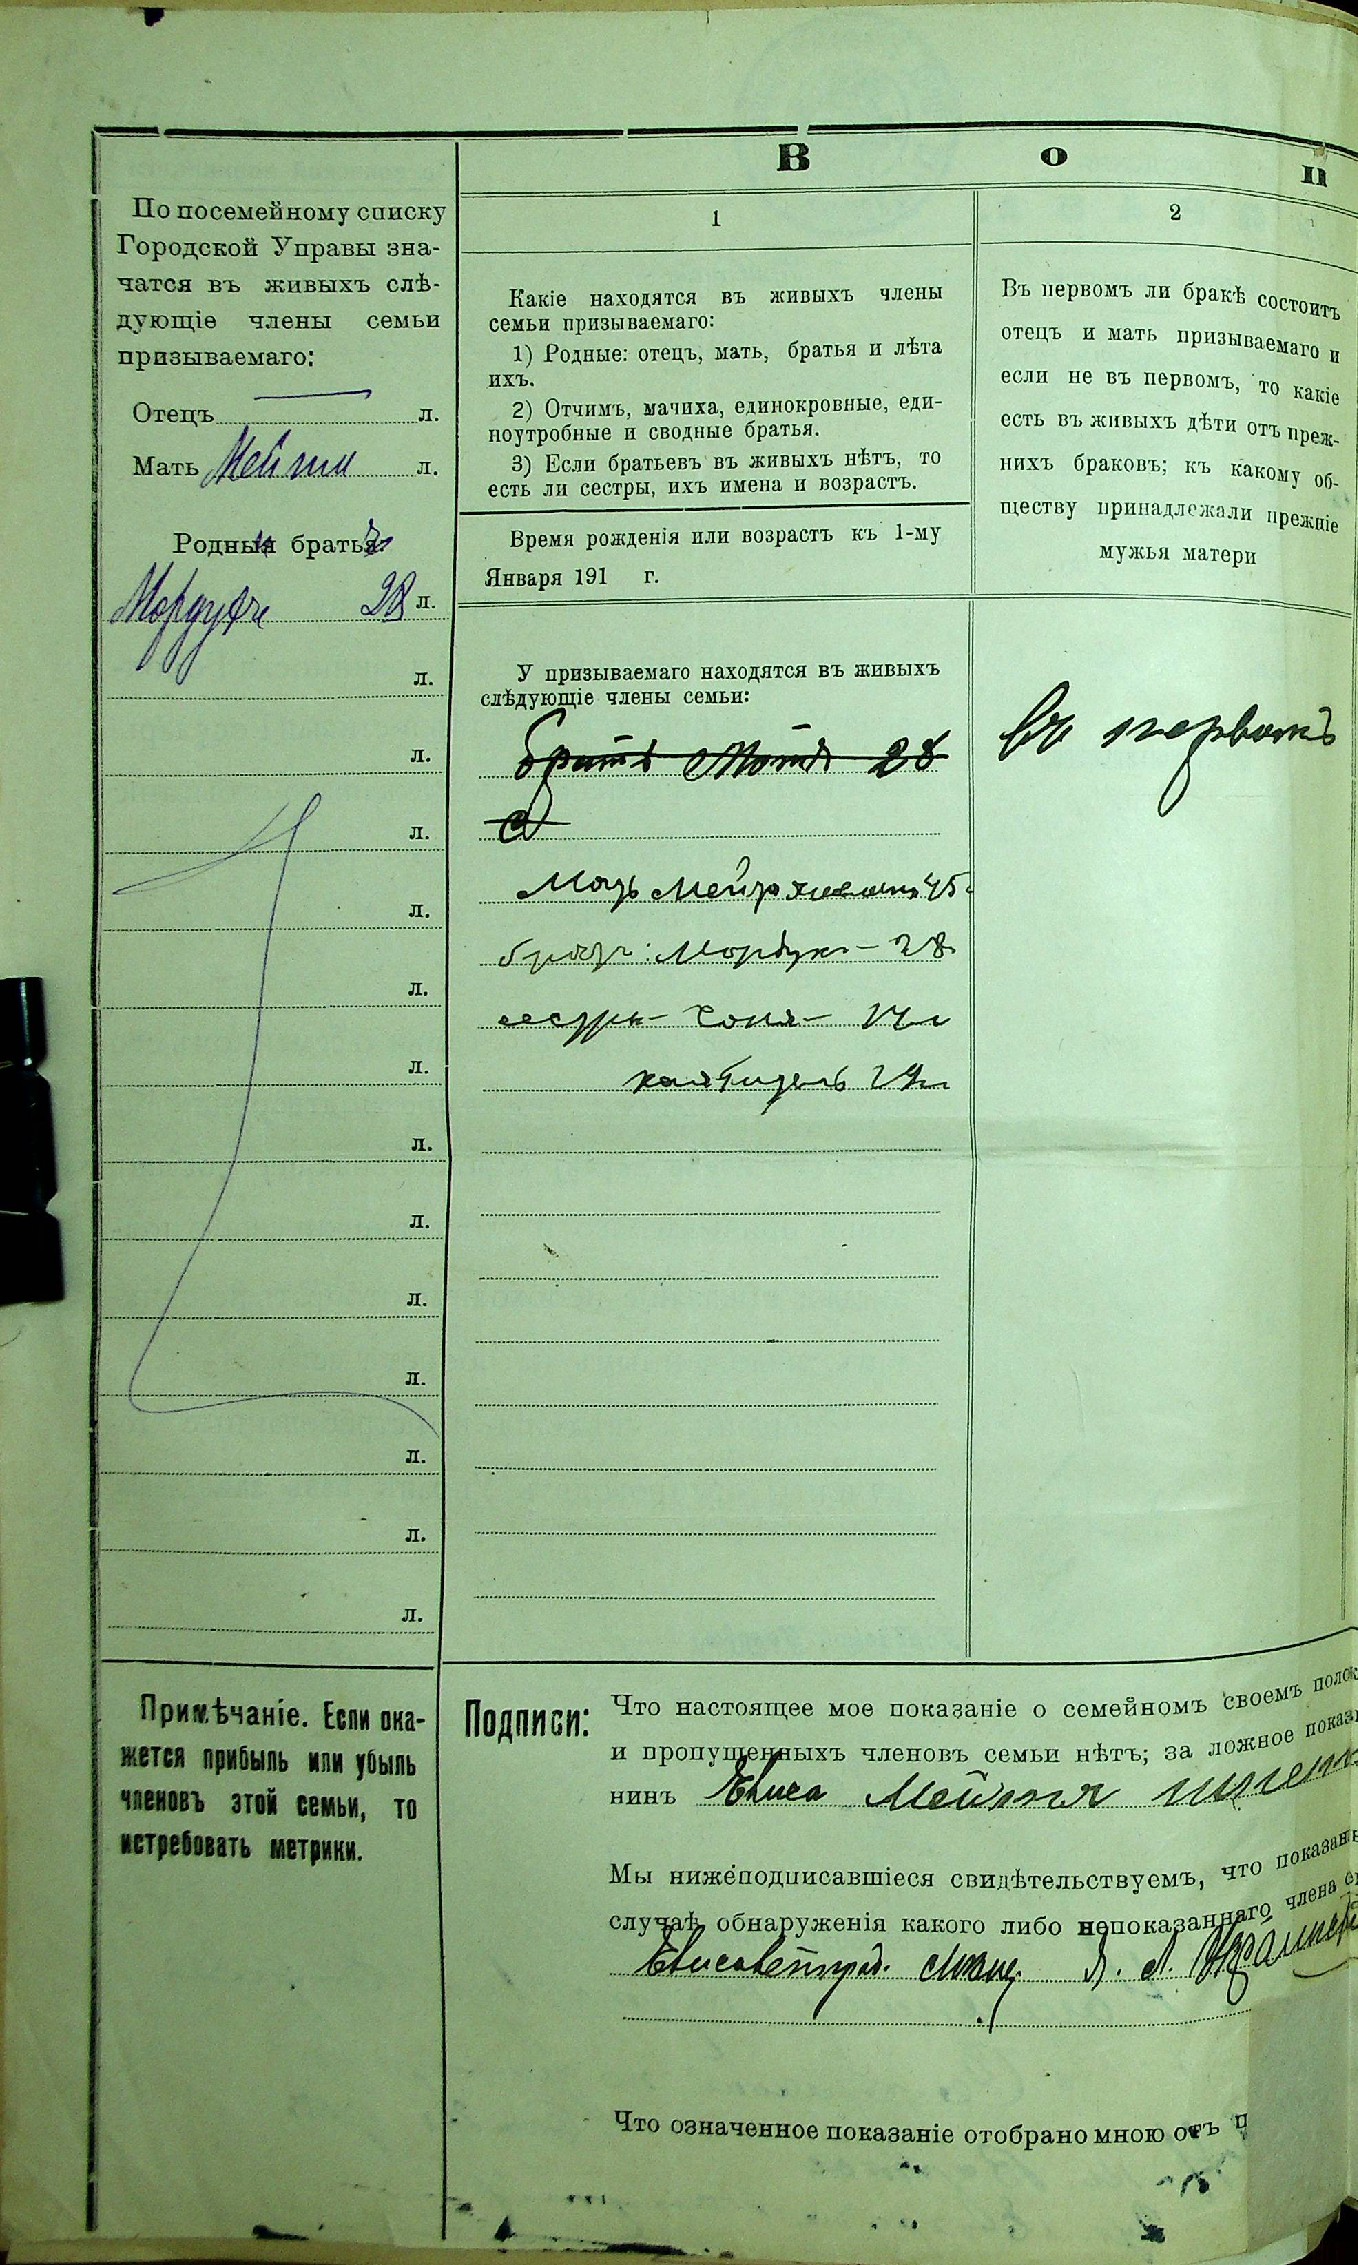 В о п
По посемейному списку
Городской Управы зна-
чатся въ живыхъ слѣ-
дующіе члены семьи
призываемаго:
Отецъ л.
Мать Мейтя л.
Родныя братья
Мордухъ 28 л.
л.
л.
л.
л.
л.
л.
л.
л.
л.
л.
л.
л.
л.
1
Какіе находятся въ живыхъ члены
семьи призываемаго:
1) Родные: отецъ, мать, братья и лѣта
ихъ.
2) Отчимъ, мачиха, единокровные, еди-
поутробные и сводные братья.
3) Если братьевъ въ живыхъ нѣтъ, то
есть ли сестры, ихъ имена и возрастъ.
Время рожденія или возрастъ къ 1-му
Января 191 г.
У призываемаго находятся въ живыхъ
слѣдующіе члены семьи:
Братъ Мотя 28
С
Мать Мейтя 45
братъ: Мордухъ - 28
сестры - Соня - 17 л
2
Въ первомъ ли бракѣ состоитъ
отецъ и мать призываемаго и
если не въ первомъ, то какіе
есть въ живыхъ дѣти отъ преж-
нихъ браковъ; къ какому об-
ществу принадлежали прежніе
мужья матери
въ первомъ
Примѣчаніе. Если ока-
жется прибыль или убыль
членовъ этой семьи, то
истребовать метрики.
Подписи:
Что настоящее мое показаніе о семейномъ своемъ полож
и пропущенныхъ членовъ семьи нѣтъ; за ложное показа
нинъ Елиса Мейтя
Мы нижеподписавшіеся свидѣтельствуемъ, что показані
случаѣ обнаруженія какого либо непоказаннаго члена е
Елисаветград. мѣщ. Я. Л.
Что означенное показаніе отобрано мною отъ п